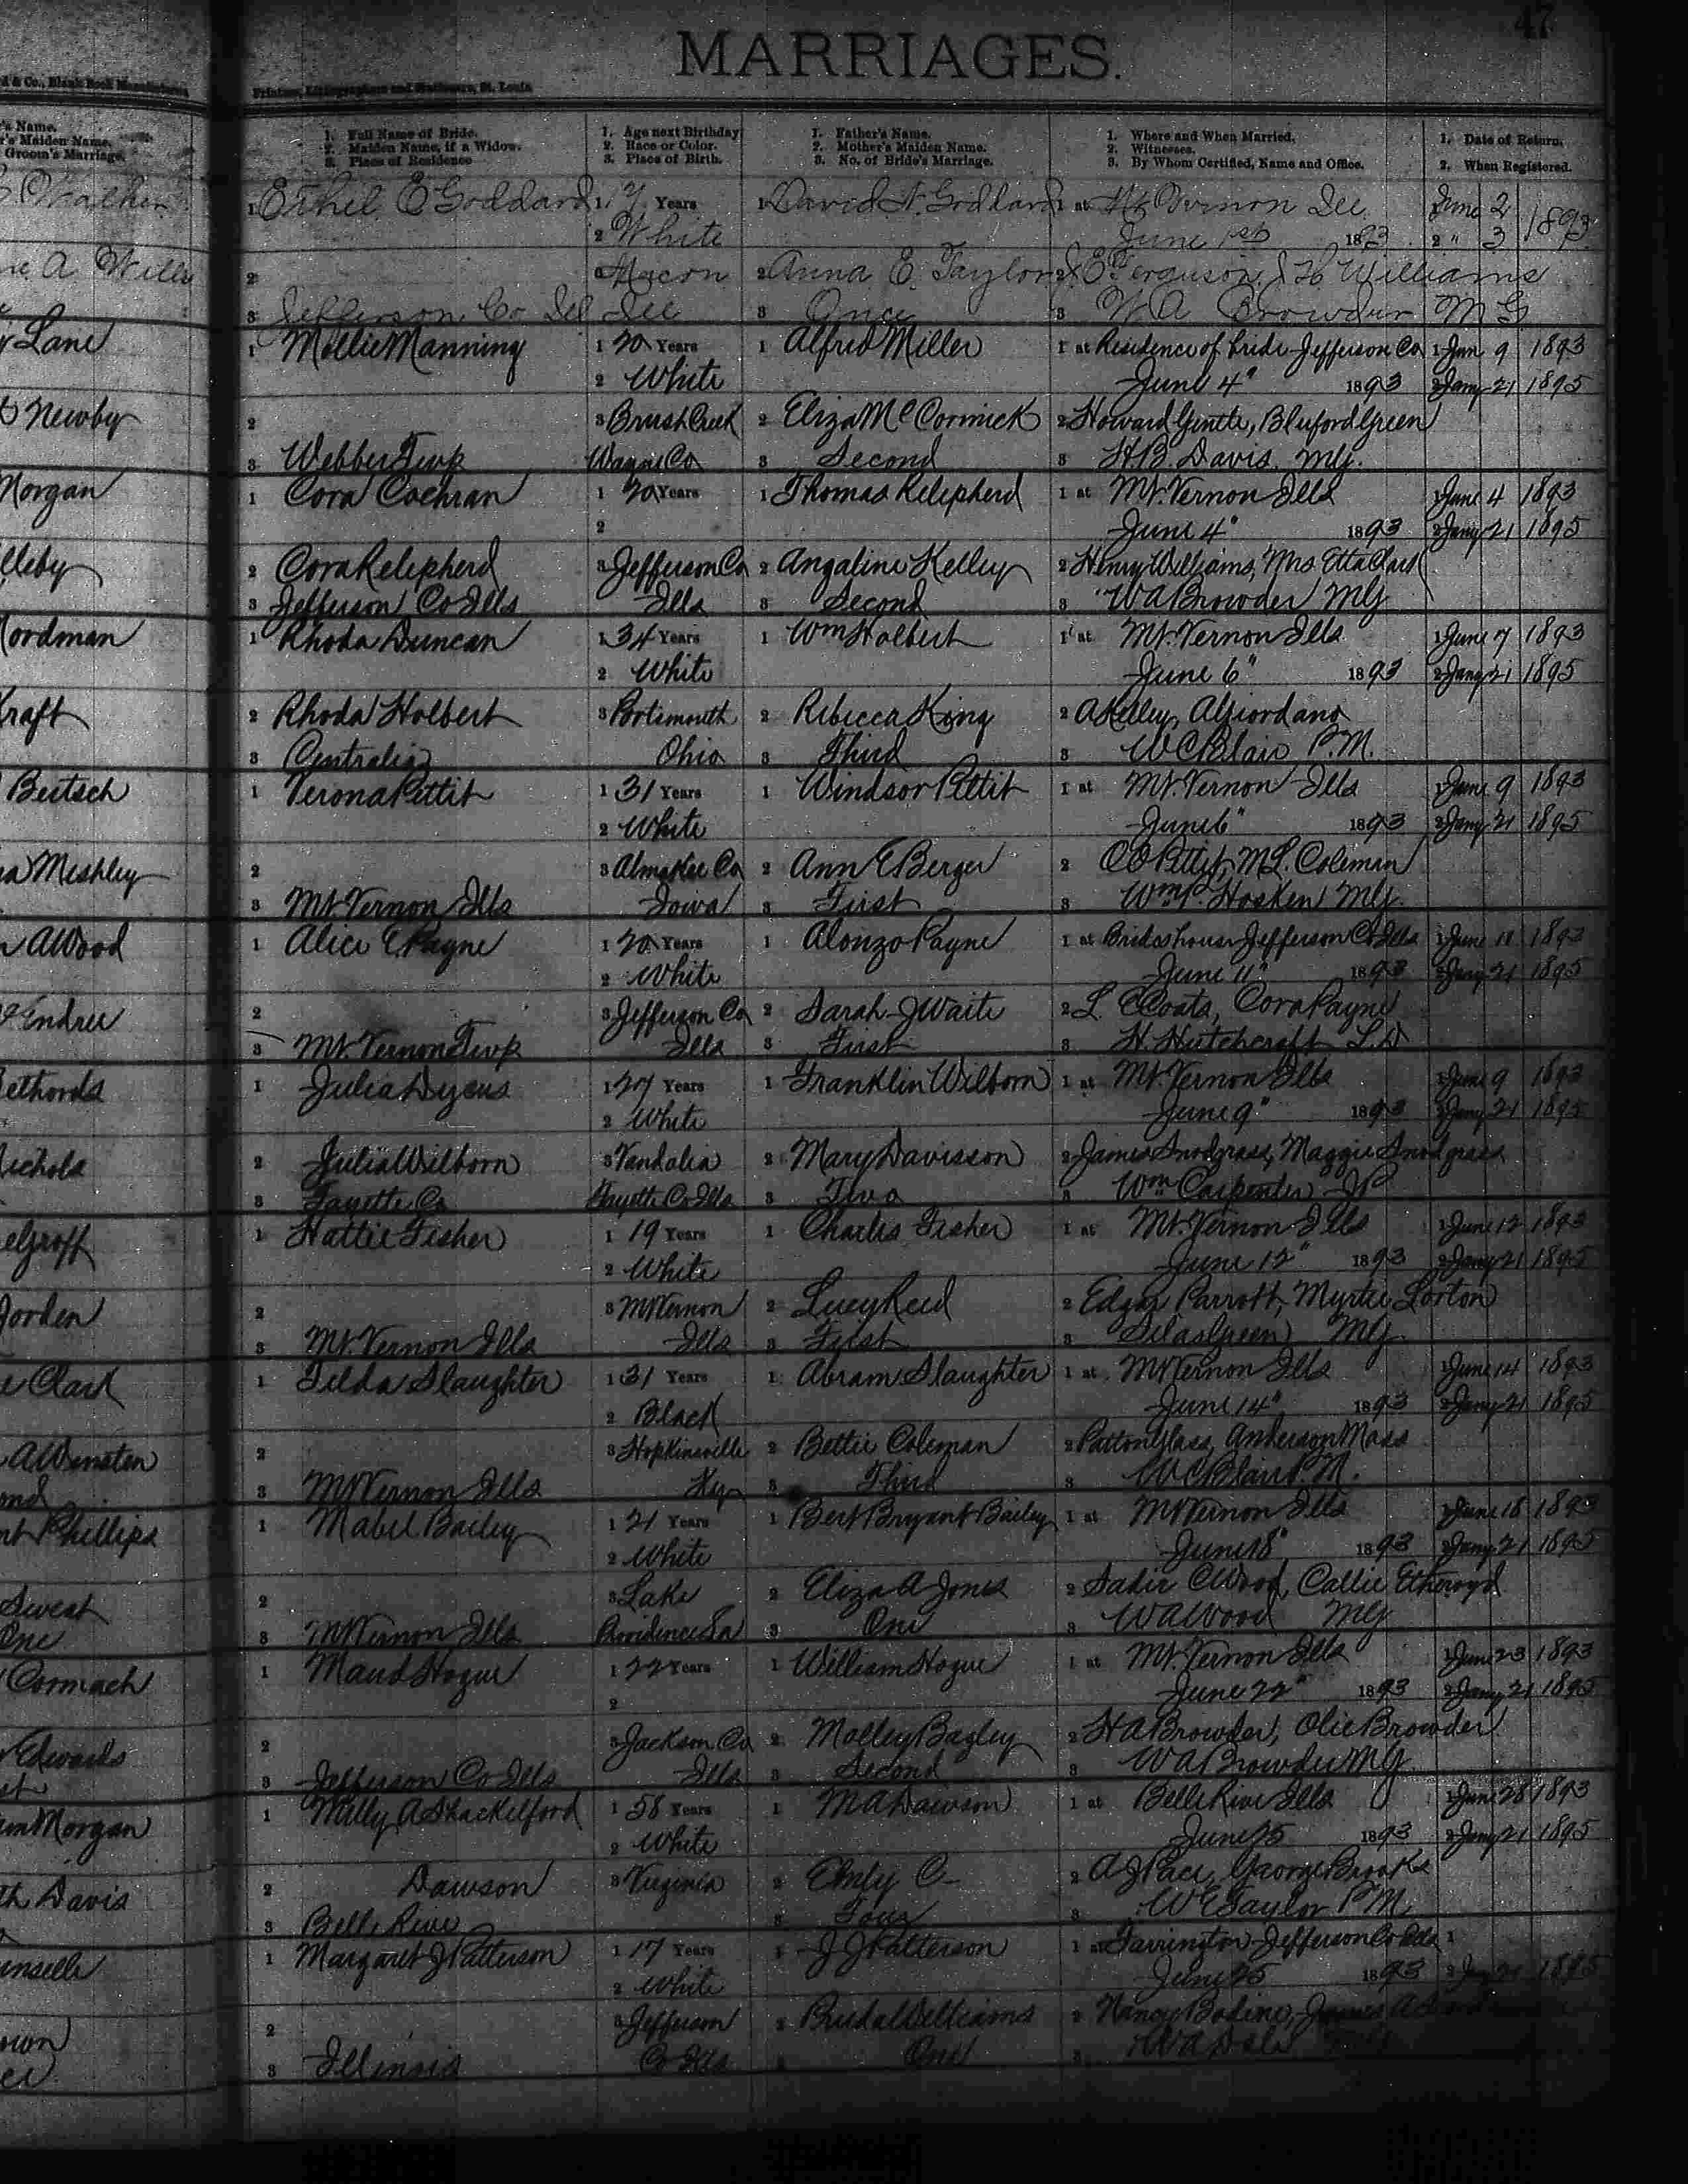 47
MARRIAGES.
d & Co., Blank Book Manufacturers
Printers, Lithographers and Stationers, St. Louis.
's Name.
r's Maiden Name.
Groom's Marriage.
1. Full Name of Bride.
2. Maiden Name, if a Widow.
3. Place of Residence
1. Age next Birthday
2. Race or Color.
3. Place of Birth.
1. Father's Name.
2. Mother's Maiden Name.
3. No. of Bride's Marriage.
1. Where and When Married.
2. Witnesses.
3. By Whom Certified, Name and Office.
1. Date of Return.
2. When Registered.
Walker 1 Ethel E Goddard 1 17 Years 1 David N. Goddard 1 at Mt Vernon Ill June 2 1893
2 White June 1st 1893 2 " 3
A Wills 2 3 Macon 2 Anna E. Taylor 2 J E Ferguson, J H Williams
3 Jefferson Co Ill Ill 3 Once 3 W A Browder M G
Lane 1 Mollie Manning 1 20 Years 1 Alfred Miller 1 at Residence of bride Jefferson Co 1 Jun 9 1893
2 White June 4" 1893 2 Jany 21 1895
Newby 2 3 Brush Creek 2 Eliza McCormick 2 Howard Gentle, Bluford Green
3 Webber Twp Wayne Co 3 Second 3 H. B. Davis. MG.
Morgan 1 Cora Cochran 1 20 Years 1 Thomas Relepherd 1 at Mt. Vernon Ills 1 June 4 1893
2 June 4" 1893 2 Jany 21 1895
lleby 2 Cora Relepherd 3 Jefferson Co 2 Angaline Kelley 2 Henry Williams, Mrs. Etta Clark
3 Jefferson Co Ills Ills 3 Second 3 W A Browder MG
ordman 1 Rhoda Duncan 1 34 Years 1 Wm Holbert 1 at Mt. Vernon Ills 1 June 7 1893
2 White June 6" 1893 2 Jany 21 1895
Kraft 2 Rhoda Holbert 3 Portsmouth 2 Rebecca King 2 A Kelley, A Giordano
3 Centralia Ohio 3 Third 3 W C Blair P.M.
Bertsch 1 Verona Pettit 1 31 Years 1 Windsor Pettit 1 at Mt. Vernon Ills 1 June 9 1893
2 White June 6" 1893 2 Jany 21 1895
a Meshley 2 3 Almakee Co 2 Ann E Berger 2 C E Pettit, M L. Coleman
3 Mt Vernon Ills Iowa 3 First 3 Wm P. Hosken MG.
n A Wood 1 Alice E Payne 1 20 Years 1 Alonzo Payne 1 at Brides house Jefferson Co Ills 1 June 11 1893
2 White June 11" 1893 2 Jany 21 1895
Endree 2 3 Jefferson Co 2 Sarah J Waite 2 L C Coats, Cora Payne
3 Mt. Vernon Twp Ills 3 First 3 H. Hutchcraft L.D
ethords 1 Julia Dycus 1 27 Years 1 Franklin Wilborn 1 at Mt. Vernon Ills 1 June 9 1893
2 White June 9" 1893 2 Jany 21 1895
Nichols 2 Julia Wilborn 3 Vandalia 2 Mary Davisson 2 James Snodgrass, Maggie Snodgrass
3 Fayette Co Fayette Co Ills 3 Two 3 Wm Carpenter JP
elgroff 1 Hattie Fisher 1 19 Years 1 Charles Fisher 1 at Mt. Vernon Ills 1 June 12 1893
2 White June 12" 1893 2 Jany 21 1895
Jorden 2 3 Mt Vernon 2 Lucy Reed 2 Edgar Parrott, Myrtie Lorton
3 Mt. Vernon Ills Ills 3 First 3 Silas Green MG
e Clark 1 Tilda Slaughter 1 31 Years 1 Abram Slaughter 1 at Mt Vernon Ills 1 June 14 1893
2 Black June 14" 1893 2 Jany 21 1895
A Wensten 2 3 Hopkinsville 2 Bettie Coleman 2 Patton Glass, Anderson Mass
ond 3 Mt Vernon Ills Ky 3 Third 3 W C Blair P. M.
nt Phillips 1 Mabel Bailey 1 21 Years 1 Bert Bryant Bailey 1 at Mt Vernon Ills 1 June 18 1893
2 White June 18" 1893 2 Jany 21 1895
Swest 2 3 Lake 2 Eliza A Jones 2 Sadie C Wood, Callie Etheroyd
One 3 Mt Vernon Ills Providence La 3 One 3 W A Wood MG
Cormach 1 Maud Hogue 1 22 Years 1 William Hogue 1 at Mt. Vernon Ills 1 June 23 1893
2 June 22" 1893 2 Jany 21 1895
Edwards 2 3 Jackson Co 2 Molley Bagley 2 H A Browder, Olie Browder
st 3 Jefferson Co Ills Ills 3 Second 3 W A Browder MG
m Morgan 1 Milly A Shackelford 1 58 Years 1 M A Dawson 1 at Belle Rive Ills 1 June 28 1893
2 White June 25 1893 2 Jany 21 1895
th Davis 2 Dawson 3 Virginia 2 Emly C 2 A J Pace, George Brooks
3 Belle Rive 3 Four 3 W E Taylor P M
unselle 1 Margaret J Patterson 1 17 Years 1 J J Patterson 1 at Farrington Jefferson Co Ills 1
2 White June 25 1893 2 1895
own 2 3 Jefferson 2 Williams 2 Nancy Bodine, James A
3 Illinois Co Ills One 3 W A